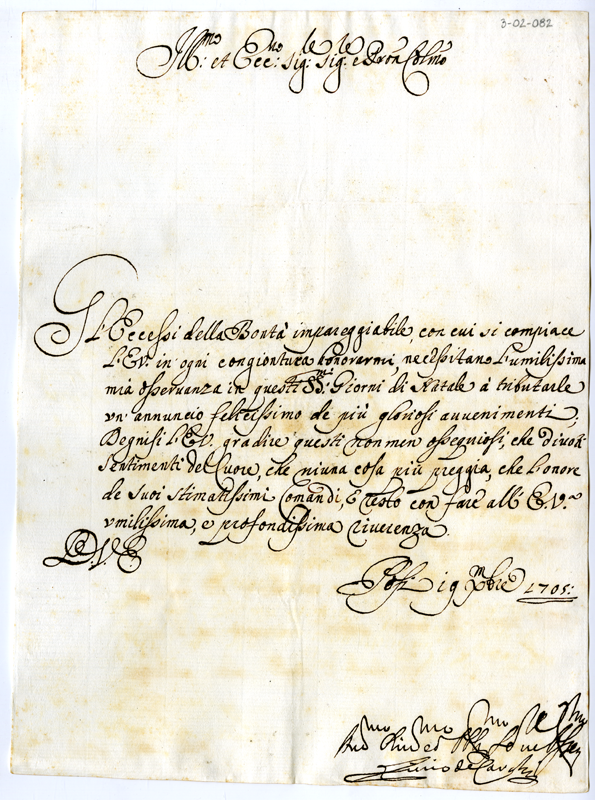 3-02-082
Ill:mo et Ecc:mo Sig:re Sig:re e Pron Colmo
Gl'Eccessi della Bontà impareggiabile, con cui si compiace
L'E.V. in ogni congiontura honorarmi, necessitano l'umilissima
mia osservanza in questi SS:mi Giorni di Natale à tributarle
un' annuncio felicissimo de più gloriosi avvenimenti,
Degnisi L'E.V. gradire questi non men ossequiosi, che divoti
sentimenti del Cuore, che niuna cosa più preggia, che l'onore
de suoi stimatissimi Comandi, E resto con fare all' E.V.ra
umilissima, e profondissima riverenza.
D. V. E.
19 Xmbre 1705: